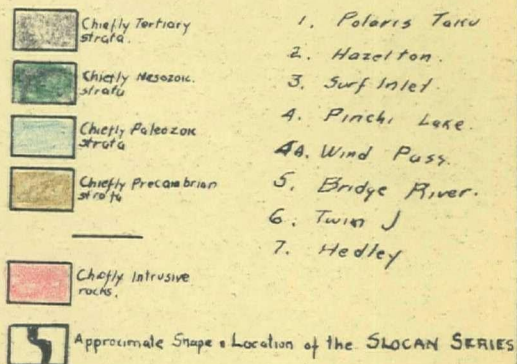 Chiefly Tertiary
strata.
Chiefly Mesozoic
strata
Chiefly Paleozoic
strata
Chiefly Precambrian
strata
Chiefly Intrusive
rocks.
Approximate Shape & Location of the SLOCAN SERIES
1. Polaris Taku
2. Hazelton.
3. Surf Inlet.
4. Pinchi Lake.
4A. Wind Pass.
5. Bridge River.
6. Twin J
7. Hedley